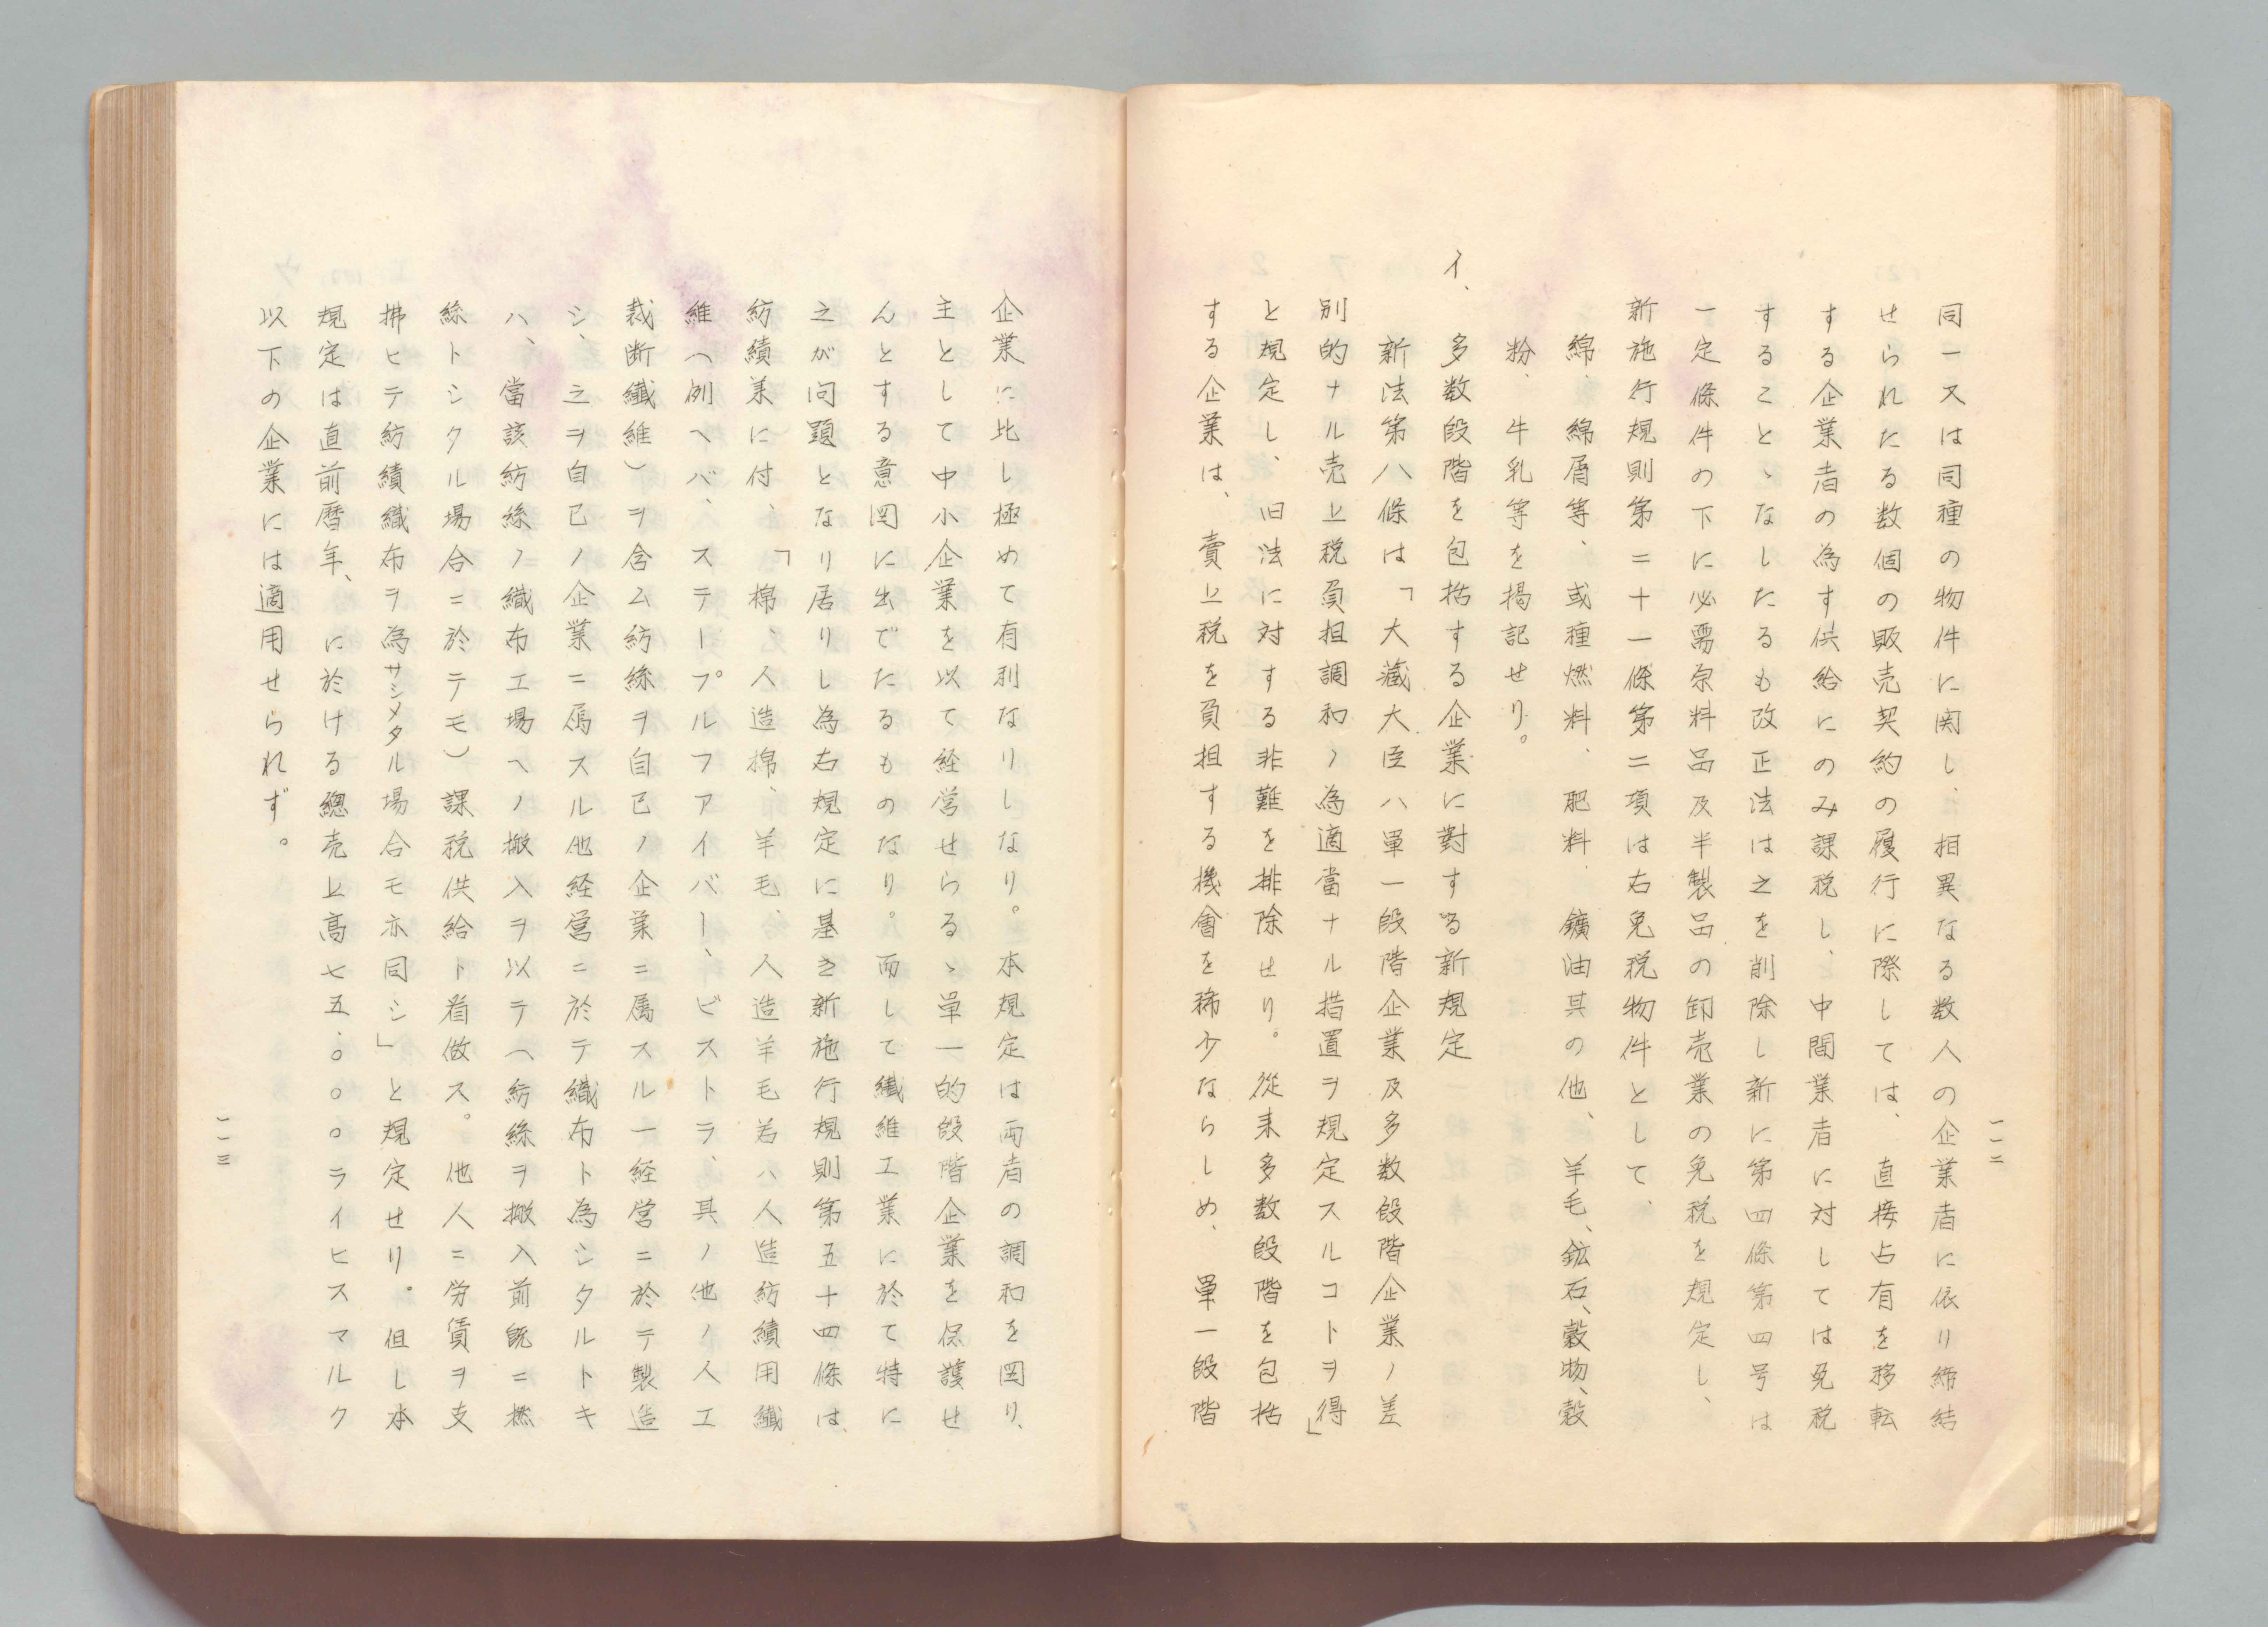 一一二
同一又は同種の物件に関し、相異なる数人の企業者に依り締結
せられたる数個の販売契約の履行に際しては、直接占有を移転
する企業者の為す供給にのみ課税し、中間業者に対しては免税
することゝなしたるも改正法は之を削除し新に第四條第四号は
一定條件の下に必需原料品及半製品の卸売業の免税を規定し、
新施行規則第二十一條第二項は右免税物件として、
綿、綿屑等、或種燃料、肥料、鑛油其の他、羊毛、鉱石、穀物、穀
粉、牛乳等を掲記せり。
イ、多数段階を包括する企業に對する新規定
新法第八條は「大藏大臣ハ單一段階企業及多数段階企業ノ差
別的ナル売上税負担調和ノ為適當ナル措置ヲ規定スルコトヲ得」
と規定し、旧法に対する非難を排除せり。従来多数段階を包括
する企業は、賣上税を負担する機會を稀少ならしめ、單一段階
企業に比し極めて有利なりしなり。本規定は両者の調和を図り、
主として中小企業を以て経営せらるゝ單一的段階企業を保護せ
んとする意図に出でたるものなり。而して纎維工業に於て特に
之が問題となり居りし為右規定に基き新施行規則第五十四條は
紡績業に付、「棉、人造棉、羊毛、人造羊毛若ハ人造紡績用纎
維（例ヘバ、ステープルフアイバー、ビストラ、其ノ他ノ人工
裁断纎維）ヲ含ム紡絲ヲ自己ノ企業ニ属スル一経営ニ於テ製造
シ、之ヲ自己ノ企業ニ属スル他経営ニ於テ織布ト為シタルトキ
ハ、當該紡絲ノ織布工場ヘノ搬入ヲ以テ（紡絲ヲ搬入前既ニ撚
絲トシタル場合ニ於テモ）課税供給ト看做ス。他人ニ労賃ヲ支
拂ヒテ紡績織布ヲ為サシメタル場合モ亦同シ」と規定せり。但し本
規定は直前暦年、に於ける總売上高七五.〇〇〇ライヒスマルク
以下の企業には適用せられず。
一一三